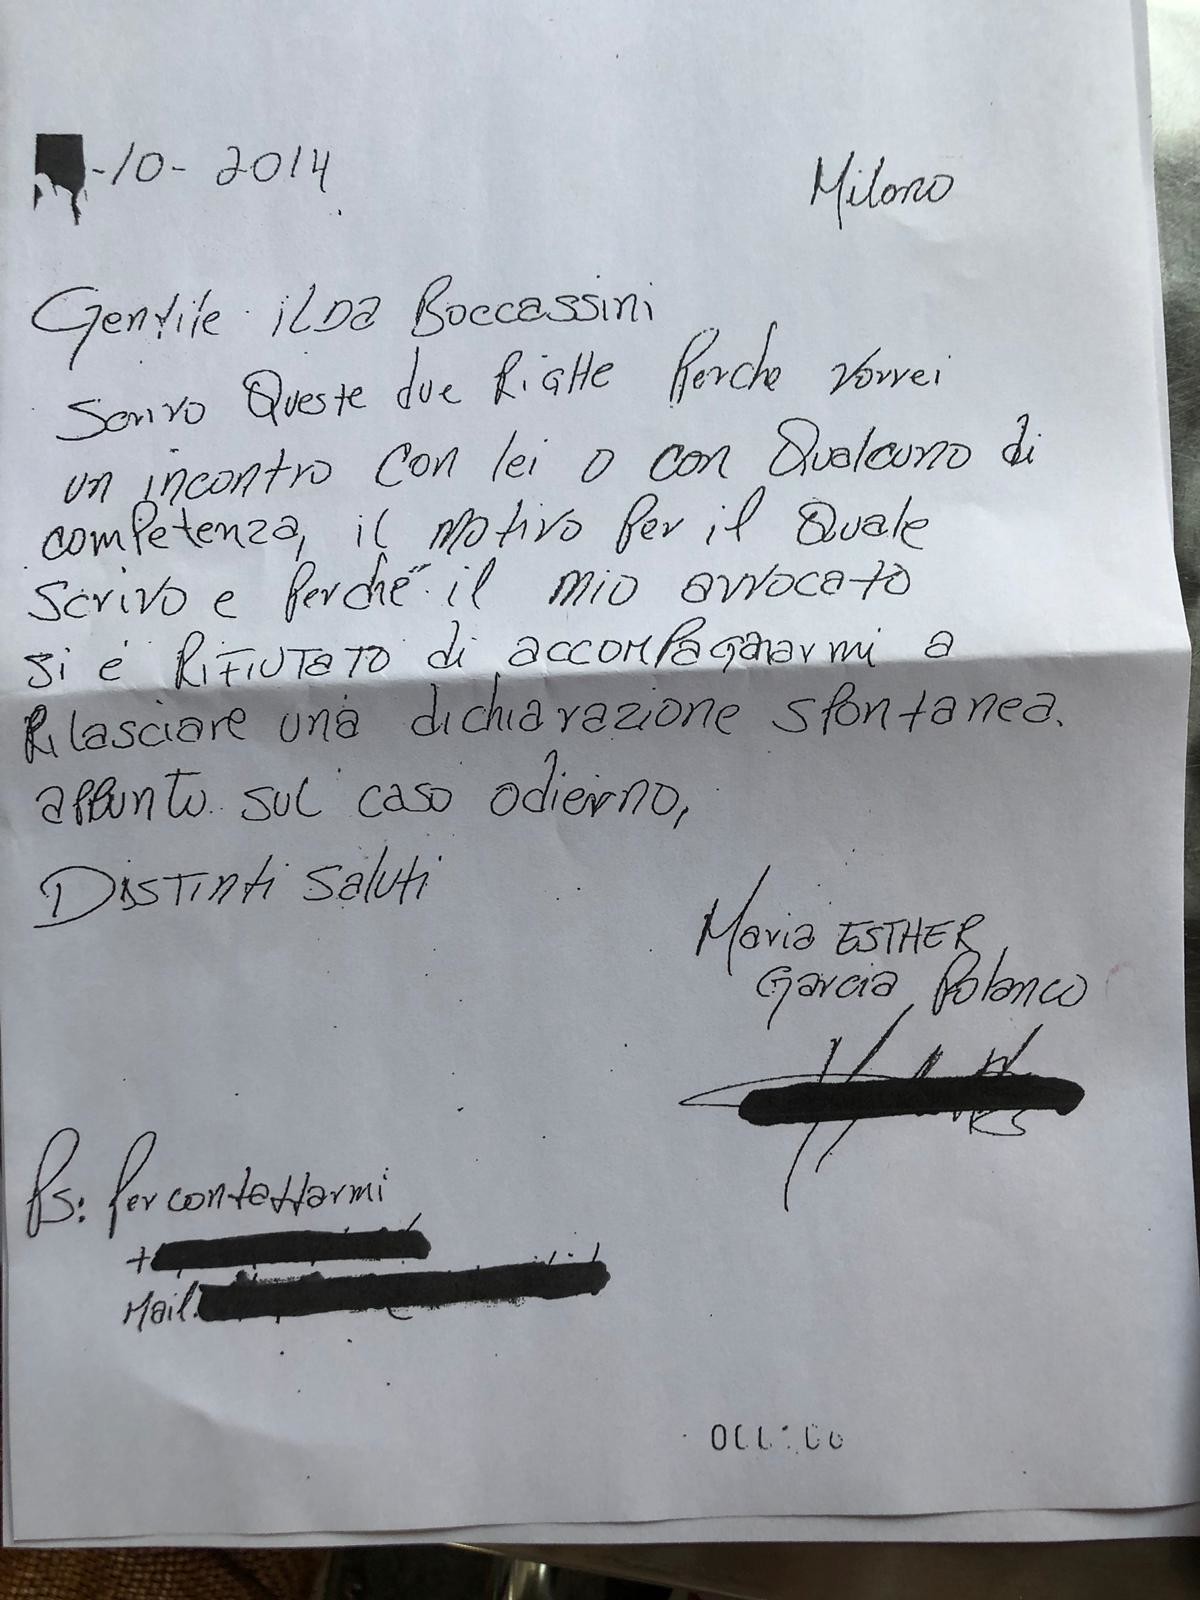 -10-2014
Milano
Gentile ILDA Boccassini
Scrivo Queste due Righe Perche vorrei
un incontro con lei o con Qualcuno di
competenza, il motivo Per il Quale
Scrivo e Perche il mio avvocato
si e RIFIUTATO di accompagnarmi a
Rilasciare una dichiarazione spontanea.
appunto sul caso odierno,
DISTINTI saluti
Maria ESTHER
Garcia Polanco
Ps: Per contattarmi
Mail: